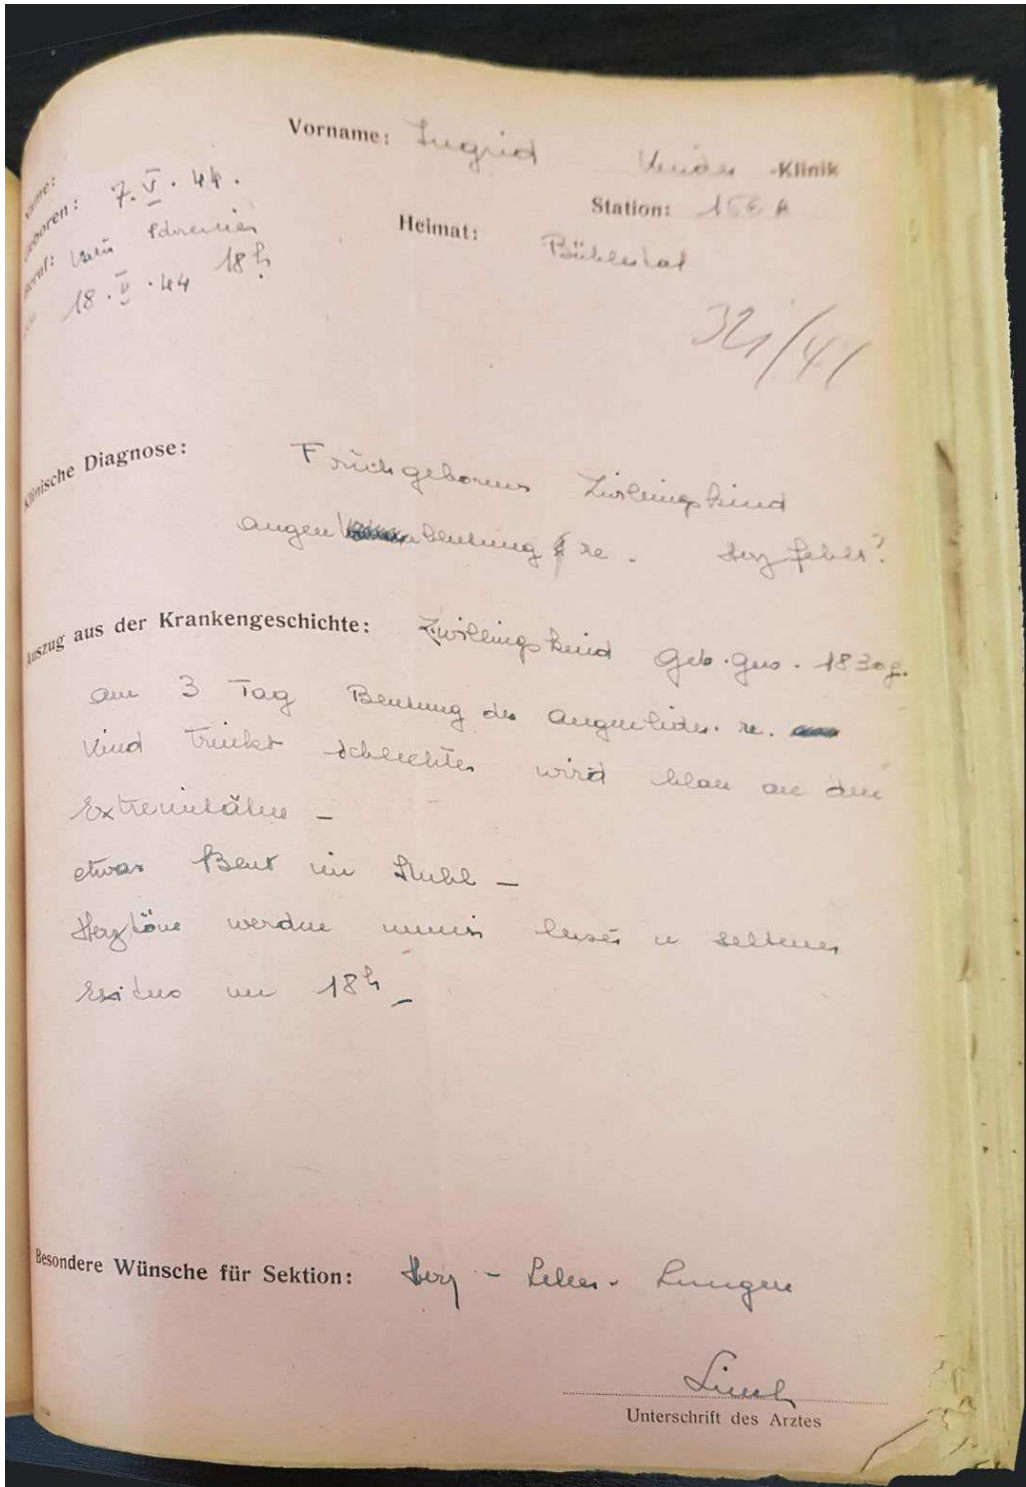 Vorname: Ingrid Kinder -Klinik
Name:
Geboren: 7. V. 44.
Station: 156 A
Beruf: Schreiner
Heimat: Bühlertal
18. V. 44 18h
321/44
Klinische Diagnose: Frühgeborenes Zwillingskind
Augen blutung re. Herzfehler?
Auszug aus der Krankengeschichte: Zwillingskind Geb. gew. 1830 g.
am 3 Tag Blutung des Augenlides. re.
Kind trinkt schlechter wird blau an den
Extremitäten –
etwas Blut im Stuhl –
Herztöne werden immer leiser u seltener
Exitus um 18h –
Besondere Wünsche für Sektion: Herz - Leber - Lungen
Unterschrift des Arztes